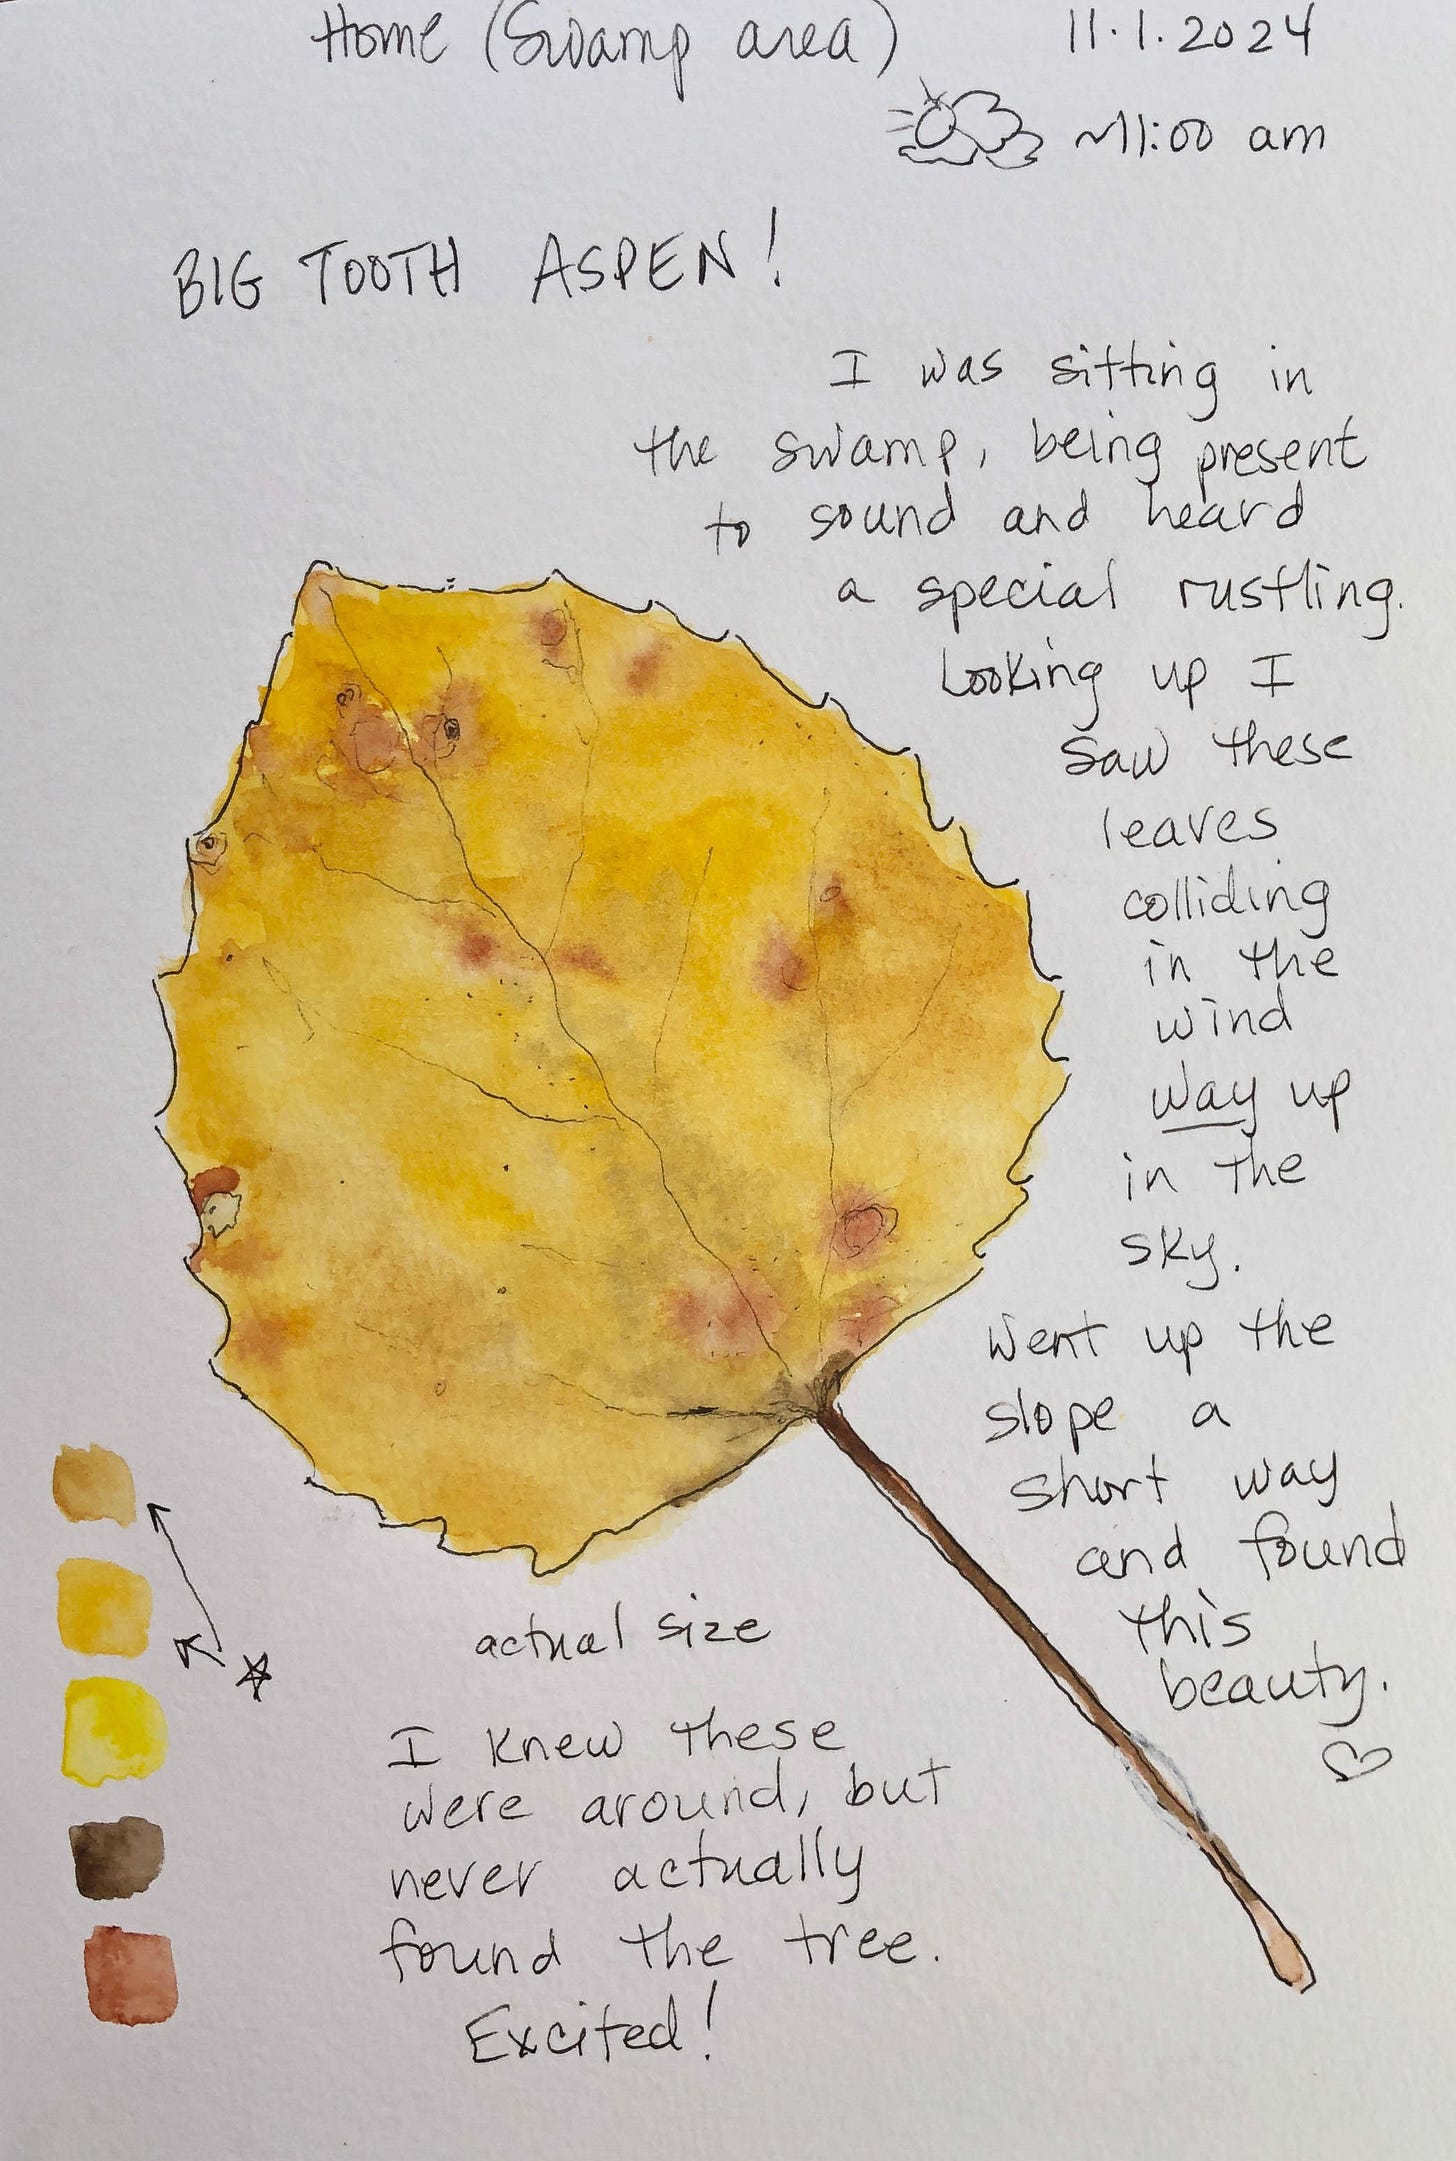 Home (Swamp area)
11.1.2024
~11:00 am
BIG TOOTH ASPEN!
I was sitting in
the swamp, being present
to sound and heard
a special rustling.
Looking up I
saw these
leaves
colliding
in the
wind
way up
in the
sky.
Went up the
slope a
short way
and found
this
beauty.
actual size
I knew these
were around, but
never actually
found the tree.
Excited!